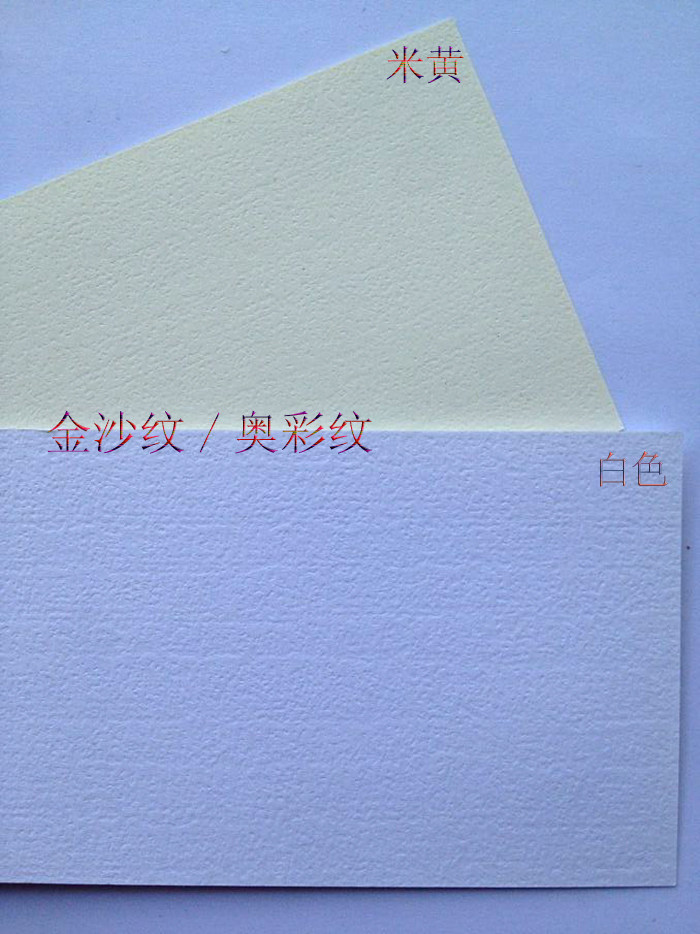 米黄
金沙纹 / 奥彩纹
白色